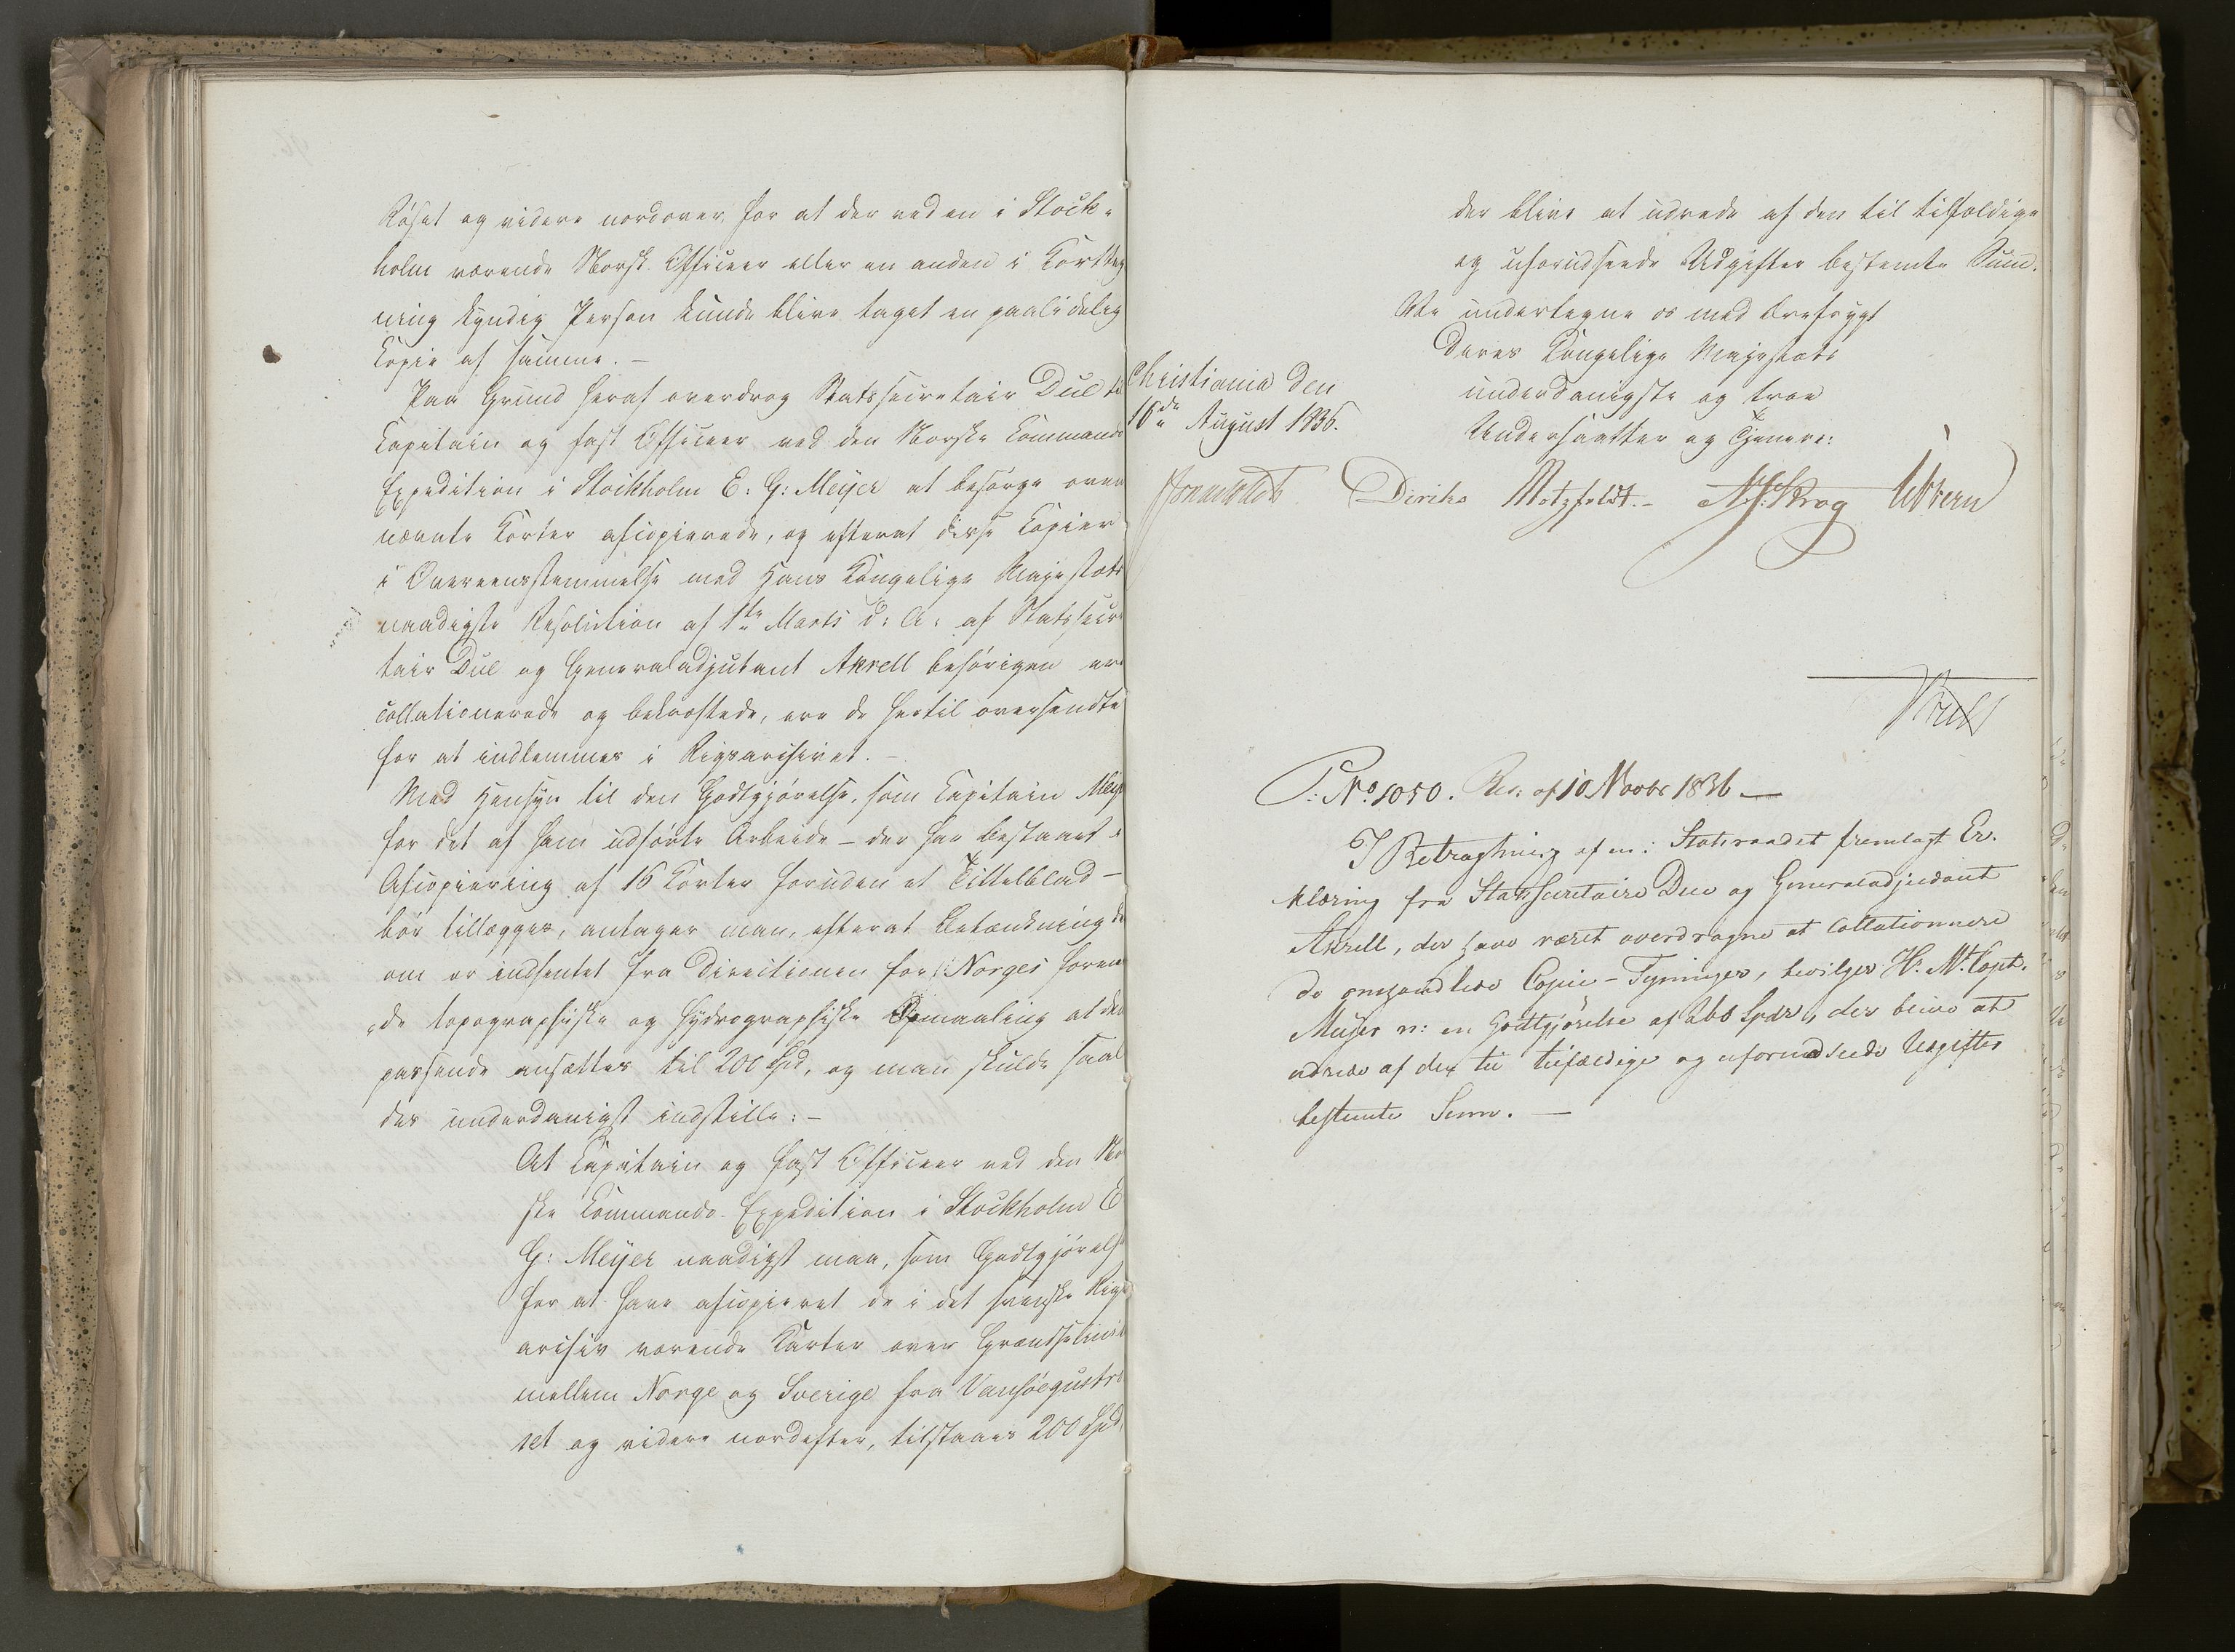 Røset og videre nordover, for at der ved en i Stock-
holm værende Norsk Officeer eller en anden i Kortteg
ning kyndig Person kunde blive taget en paalidelig
Copie af samme. –
Paa Grund heraf overdrog Statssecretair Due til
Capitain og fast Officeer ved den Norske Commando
Expedition i Stockholm E: G: Meyer at besørge oven
nævnte Korter afcopierede, og efterat disse Copier
i Overeensstemmelse med Hans Kongelige Majestæts
naadigste Resolution af 1ste Marts d: A: af Statssecre
tair Due og Generaladjutant Akrell behørigen ere
collationerede og bekræftede, ere de hertil oversendte
for at indlemmes i Rigsarchivet. –
Med Hensyn til den Godtgjørelse, som Capitain Meyer
for det af ham udførte Arbeide – der har bestaaet i
Afcopiering af 16 Korter foruden et Tittelblad –
bør tillægges, antager man, efterat Betænkning der
om er indhentet fra Directionen for Norges foren
ede topographiske og hydrographiske Opmaaling at den
passende ansættes til 200 Spd, og man skulde saale
des underdanigst indstille: –
At Capitain og fast Officeer ved den Nor
ske Commando-Expedition i Stockholm E
G: Meyer naadigst maa, som Godtgjørelse
for at have afcopieret de i det svenske Rigs
archiv værende Karter over Grændselinien
mellem Norge og Sverige fra Vonsöegustrø
set og videre nordefter, tilstaaes 200 Spd,
der blive at udrede af den til tilfældige
og uforudseede Udgifter bestemte Sum.
Vi undertegne os med Ærefrygt
Deres Kongelige Majestæts
underdanigste og troe
Undersaatter og Tjenere:
Christiania den
16de August 1836.
Diriks Motzfeldt. – Krog
P: No. 1050. Res: af 10 Novbr 1836 —
I Betragtning af en i Statsraadet fremlagt Er-
klæring fra Statssecretaire Due og Generaladjudant
Akrell, der have været overdragne at Collationnere
de omhandlede Copie-Tegninger, bevilges Hr. Mt. Capt.
Meyer n: en Godtgjörelse af 200 Spdr, der blive at
udrede af den til tilfældige og uforudseede Udgifter
bestemte Sum. —